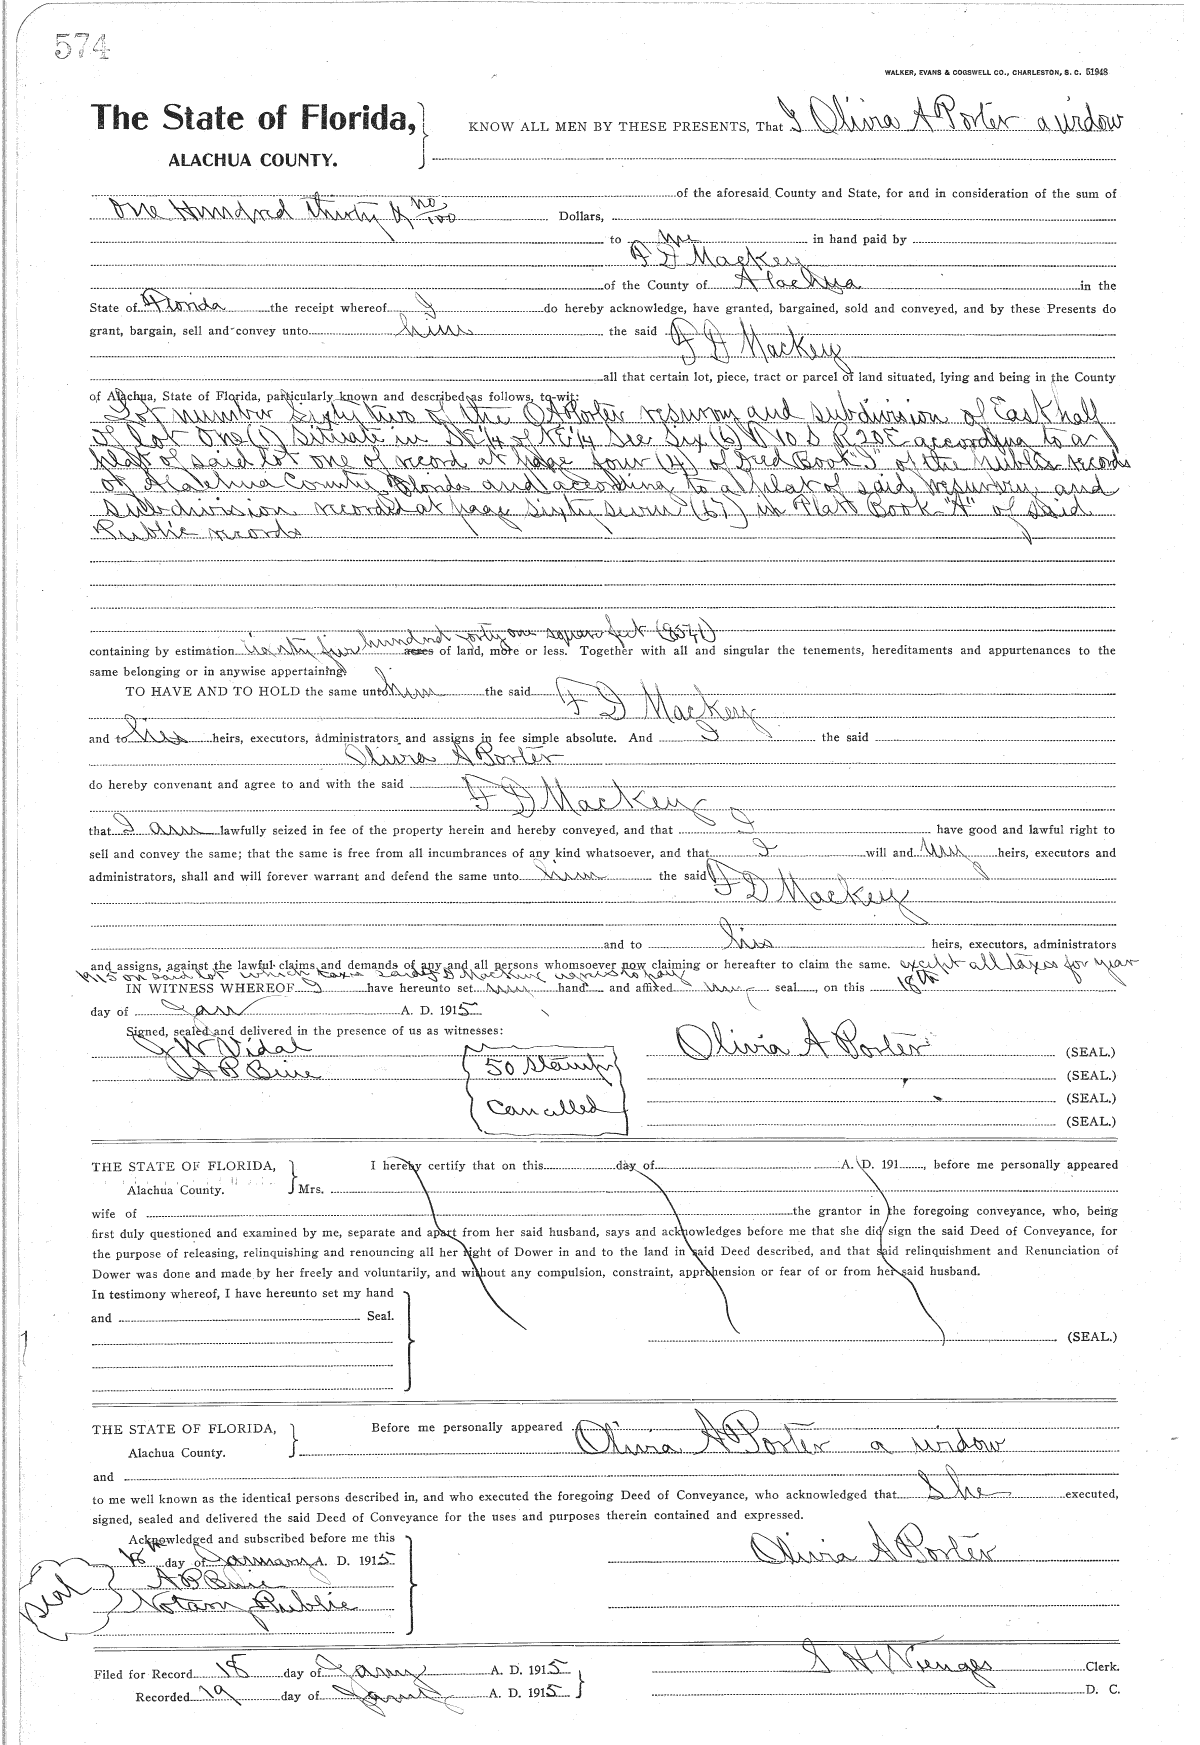 574
WALKER, EVANS & COGSWELL CO., CHARLESTON, S. C. 51948
The State of Florida,
ALACHUA COUNTY.
KNOW ALL MEN BY THESE PRESENTS, That I Olivia A Porter a widow
of the aforesaid County and State, for and in consideration of the sum of
One Hundred thirty & no/100 Dollars,
to me in hand paid by
F D Mackey
of the County of Alachua in the
State of Florida the receipt whereof I do hereby acknowledge, have granted, bargained, sold and conveyed, and by these Presents do
grant, bargain, sell and convey unto him the said
F D Mackey
all that certain lot, piece, tract or parcel of land situated, lying and being in the County
of Alachua, State of Florida, particularly known and described as follows, to-wit:
Lot number Sixty two of the O A Porter resurvey and subdivision of East half
of lot One (1) situate in SE 1/4 of NE 1/4 Sec Six (6) T 10 S R 20 E according to a
plat of said lot one of record at page four (4) of Deed Book "J" of the public records
of Alachua County Florida and according to a plat of said resurvey and
subdivision recorded at page sixty seven (67) in Plat Book "A" of said
Public records
hundred forty one square feet (8541)
containing by estimation eighty five acres of land, more or less. Together with all and singular the tenements, hereditaments and appurtenances to the
same belonging or in anywise appertaining.
TO HAVE AND TO HOLD the same unto him the said
F D Mackey
and to his heirs, executors, administrators and assigns in fee simple absolute. And I the said
Olivia A Porter
do hereby convenant and agree to and with the said
F D Mackey
that I am lawfully seized in fee of the property herein and hereby conveyed, and that I have good and lawful right to
sell and convey the same; that the same is free from all incumbrances of any kind whatsoever, and that I will and my heirs, executors and
administrators, shall and will forever warrant and defend the same unto him the said
F D Mackey
and to his heirs, executors, administrators
and assigns, against the lawful claims and demands of any and all persons whomsoever now claiming or hereafter to claim the same. except all taxes for year
1915 on said lot which taxes said F D Mackey to pay
IN WITNESS WHEREOF I have hereunto set my hand and affixed my seal, on this 18th
day of Jan A. D. 1915
Signed, sealed and delivered in the presence of us as witnesses:
G W Vidal
A P Buie
50 Stamp
Cancelled
Olivia A Porter (SEAL.)
(SEAL.)
(SEAL.)
(SEAL.)
THE STATE OF FLORIDA,
Alachua County.
I hereby certify that on this day of A. D. 191, before me personally appeared
Mrs.
wife of the grantor in the foregoing conveyance, who, being
first duly questioned and examined by me, separate and apart from her said husband, says and acknowledges before me that she did sign the said Deed of Conveyance, for
the purpose of releasing, relinquishing and renouncing all her right of Dower in and to the land in said Deed described, and that said relinquishment and Renunciation of
Dower was done and made by her freely and voluntarily, and without any compulsion, constraint, apprehension or fear of or from her said husband.
In testimony whereof, I have hereunto set my hand
and Seal.
(SEAL.)
THE STATE OF FLORIDA,
Alachua County.
Before me personally appeared Olivia A Porter a widow
and
to me well known as the identical persons described in, and who executed the foregoing Deed of Conveyance, who acknowledged that She executed,
signed, sealed and delivered the said Deed of Conveyance for the uses and purposes therein contained and expressed.
Acknowledged and subscribed before me this
18th day of January A. D. 1915
A P Buie
Notary Public
Seal
Olivia A Porter
Filed for Record 18 day of Jany A. D. 1915
S H Wienges Clerk.
Recorded 19 day of Jany A. D. 1915
D. C.